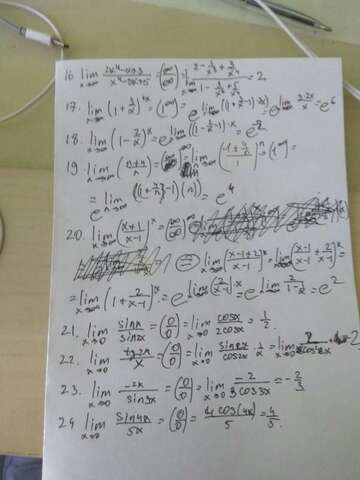 16 lim x→∞ (2x⁴-x+3)/(x⁴-3x+5) = (∞/∞) = lim x→∞ (2-1/x³+3/x⁴)/(1-3/x³+5/x⁴) = 2
17. lim x→∞ (1+3/x)^2x = (1^∞) = e^lim x→∞ ((1+3/x-1)·2x) = e^lim x→∞ 3·2x/x = e⁶
18. lim x→∞ (1-2/x)^x = e^lim x→∞ ((1-2/x-1)·x) = e^-2
19. lim n→∞ ((n+4)/n)^n = lim n→∞ ((1+4/n)/1)^n = (1^∞) =
= e^lim n→∞ ((1+4/n)-1)(n)) = e⁴
20. lim x→∞ ((x+1)/(x-1))^x = (∞/∞)^∞
= lim x→∞ ((x-1+2)/(x-1))^x = lim x→∞ ((x-1)/(x-1)+2/(x-1))^x =
= lim x→∞ (1+2/(x-1))^x = e^lim x→∞ (2/(x-1))·x = e^lim x→∞ = e²
21. lim x→0 sinx/sin2x = (0/0) = lim x→0 cosx/2cos2x = 1/2.
22. lim x→0 tg2x/x = (0/0) = lim x→0 sin2x/cos2x · 1/x = lim x→0 = 2
23. lim x→0 -2x/sin3x = (0/0) = lim x→0 -2/3cos3x = -2/3
24 lim x→0 sin4x/5x = (0/0) = 4cos(4x)/5 = 4/5.